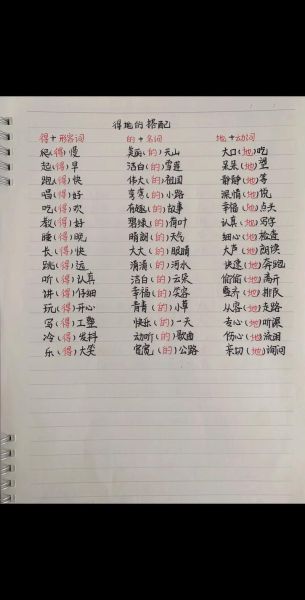 得地的搭配
得+形容词 的+名词 地+动词
爬(得)慢 美丽(的)天山 大口(地)吃
起(得)早 洁白(的)雪莲 呆呆(地)望
跑(得)快 伟大(的)祖国 静静(地)等
唱(得)好 弯弯(的)小路 深情(地)说
吃(得)欢 有趣(的)故事 幸福(地)点头
教(得)好 碧绿(的)荷叶 认真(地)写字
睡(得)晚 晴朗(的)天气 细心(地)检查
长(得)快 大大(的)眼睛 大声(地)朗读
跳(得)远 清清(的)河水 快速(地)奔跑
听(得)认真 洁白(的)云朵 偷偷(地)离开
讲(得)仔细 幸福(的)笑容 整齐(地)排队
玩(得)开心 青青(的)小草 从容(地)走路
写(得)工整 快乐(的)一天 专心(地)听课
冷(得)发抖 动听(的)歌曲 伤心(地)流泪
乐(得)大笑 宽宽(的)公路 亲切(地)询问